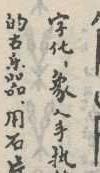 字化，象人手执
的古乐器。用石片